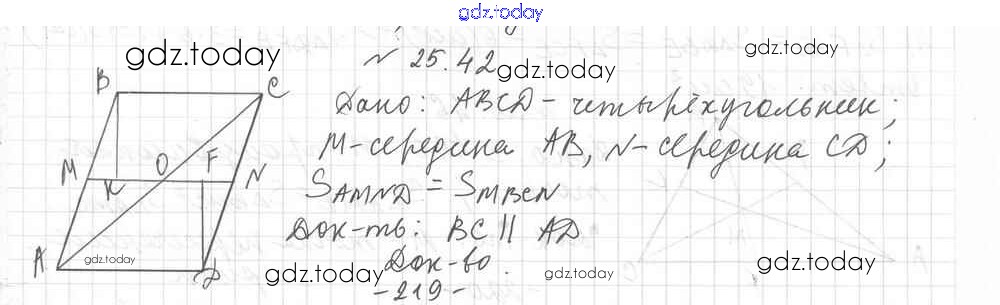 gdz.today
gdz.today
gdz.today
№ 25.42
gdz.today
Дано: ABCD - четырёхугольник;
M-середина AB, N-середина CD;
S AMND = S MBCN
Док-ть: BC || AD
Док-во.
-219-
B
C
M
K
O
F
N
A
D
gdz.today
gdz.today
gdz.today
gdz.today